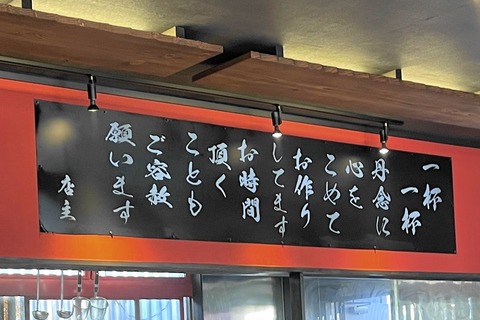 一杯
一杯
丹念に
心を
こめて
お作り
してます
お時間
頂く
ことも
ご容赦
願います
店主